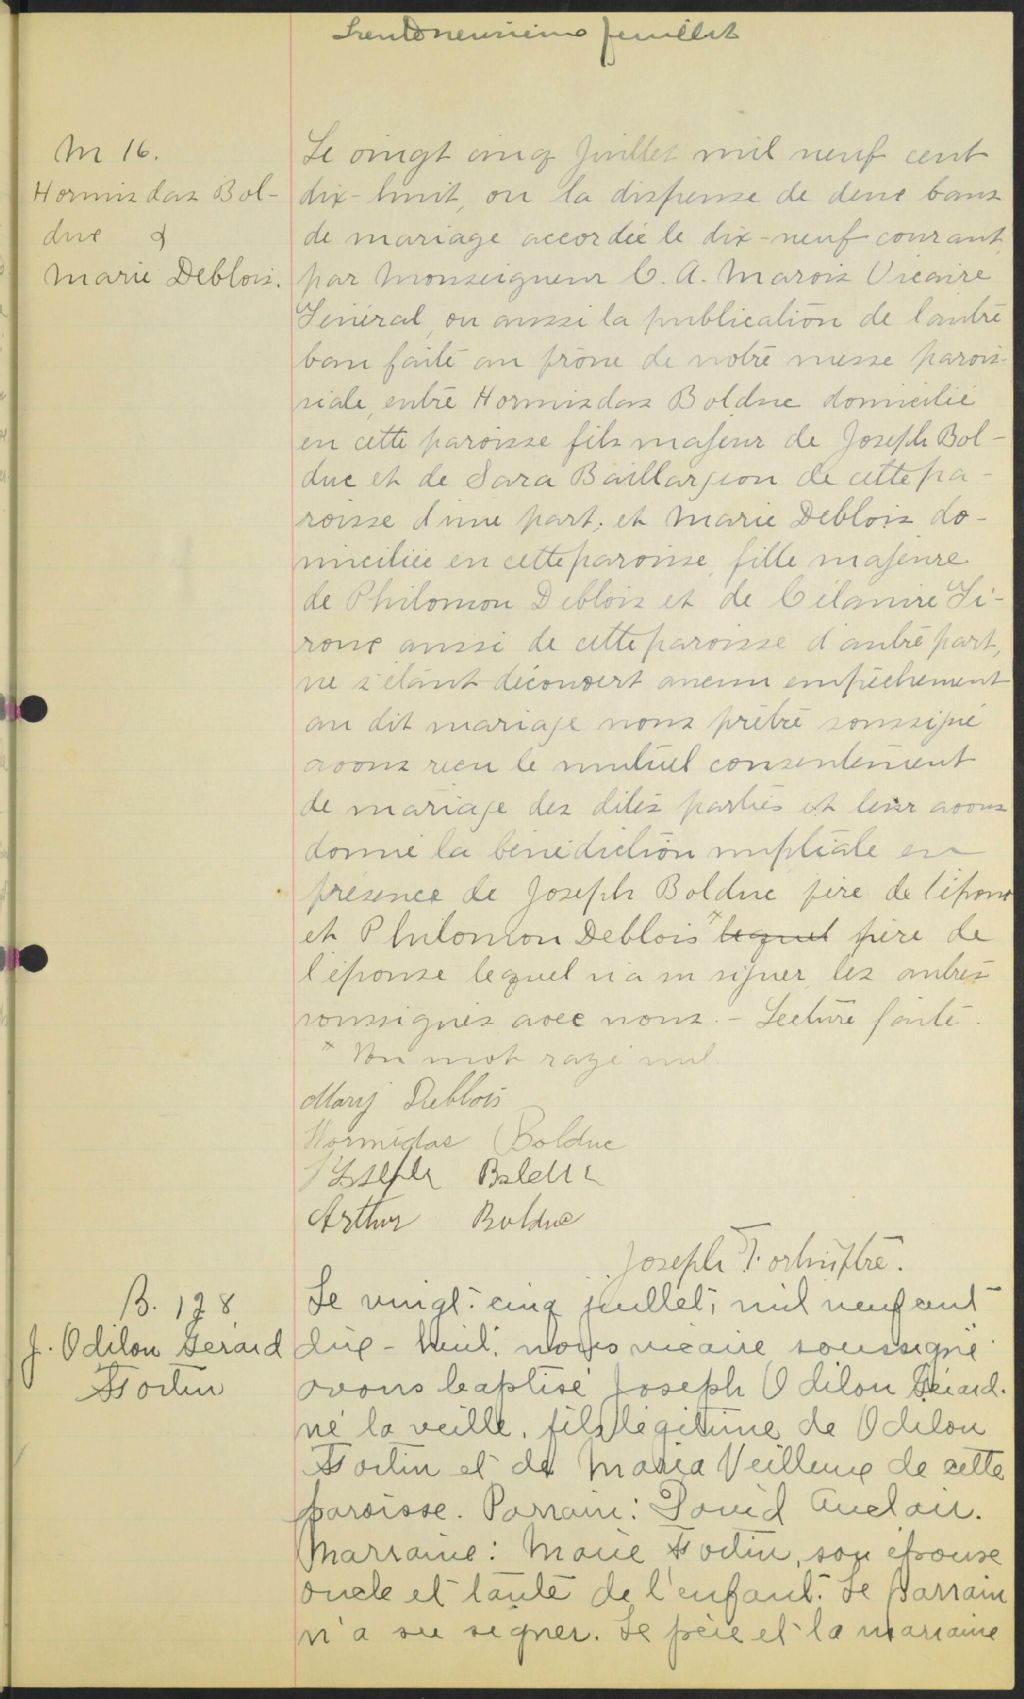 Trenteneuvième feuillet
M 16.
Hormisdas Bol-
duc &
Marie Deblois.
Le vingt cinq Juillet mil neuf cent
dix-huit, vu la dispense de deux bans
de mariage accordée le dix-neuf courant
par Monseigneur C. A. Marois Vicaire
Général, vu aussi la publication de l'autre
ban faite au prône de notre messe parois-
siale, entre Hormisdas Bolduc domicilié
en cette paroisse fils majeur de Joseph Bol-
duc et de Sara Baillargeon de cette pa-
roisse d'une part; et Marie Deblois do-
miciliée en cette paroisse, fille majeure
de Philomon Deblois et de Célanire Gi-
roux aussi de cette paroisse d'autre part,
ne s'étant découvert aucun empêchement
au dit mariage nous prêtre soussigné
avons reçu le mutuel consentement
de mariage des dites parties et leur avons
donné la bénédiction nuptiale en
présence de Joseph Bolduc père de l'époux
et Philomon Deblois * lequel père de
l'épouse lequel n'a su signer, les autres
soussignés avec nous. - Lecture faite.
* Un mot rayé nul.
Mary Deblois
Hormidas Bolduc
Joseph Bolduc
Arthur Bolduc
Joseph Fortin ptre.
B. 128
J. Odilon Gérard
Fortin
Le vingt-cinq juillet, mil neuf cent
dix-huit, nous vicaire soussigné
avons baptisé Joseph Odilon Gérard.
né la veille, fils légitime de Odilon
Fortin et de Maria Veilleux de cette
paroisse. Parrain: David Auclair.
Marraine: Marie Fortin, son épouse
oncle et tante de l'enfant. Le parrain
n'a su signer. Le père et la marraine